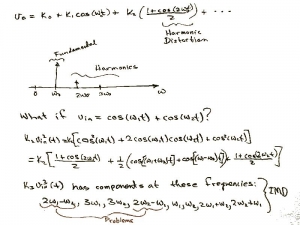 v₀ = K₀ + K₁cos(ω₀t) + K₂(1+cos(2ω₀t)/2) + ···
Harmonic
Distortion
Fundamental
Harmonics
0 ω₀ 2ω₀ 3ω₀ ω
What if vᵢₙ = cos(ω₁t) + cos(ω₂t)?
K₂vᵢₙ²(t) = K₂[cos²(ω₁t) + 2cos(ω₁t)cos(ω₂t) + cos²(ω₂t)]
= K₂[1+cos(2ω₁t)/2 + 1/2(cos[ω₁+ω₂)t] + cos(ω₁-ω₂)t]) + 1+cos(2ω₂t)/2]
K₃vᵢₙ³(t) has components at these frequencies: } IMD
2ω₁-ω₂, 3ω₁, 3ω₂, 2ω₂-ω₁, ω₁, ω₂, 2ω₁+ω₂, 2ω₂+ω₁
Problems